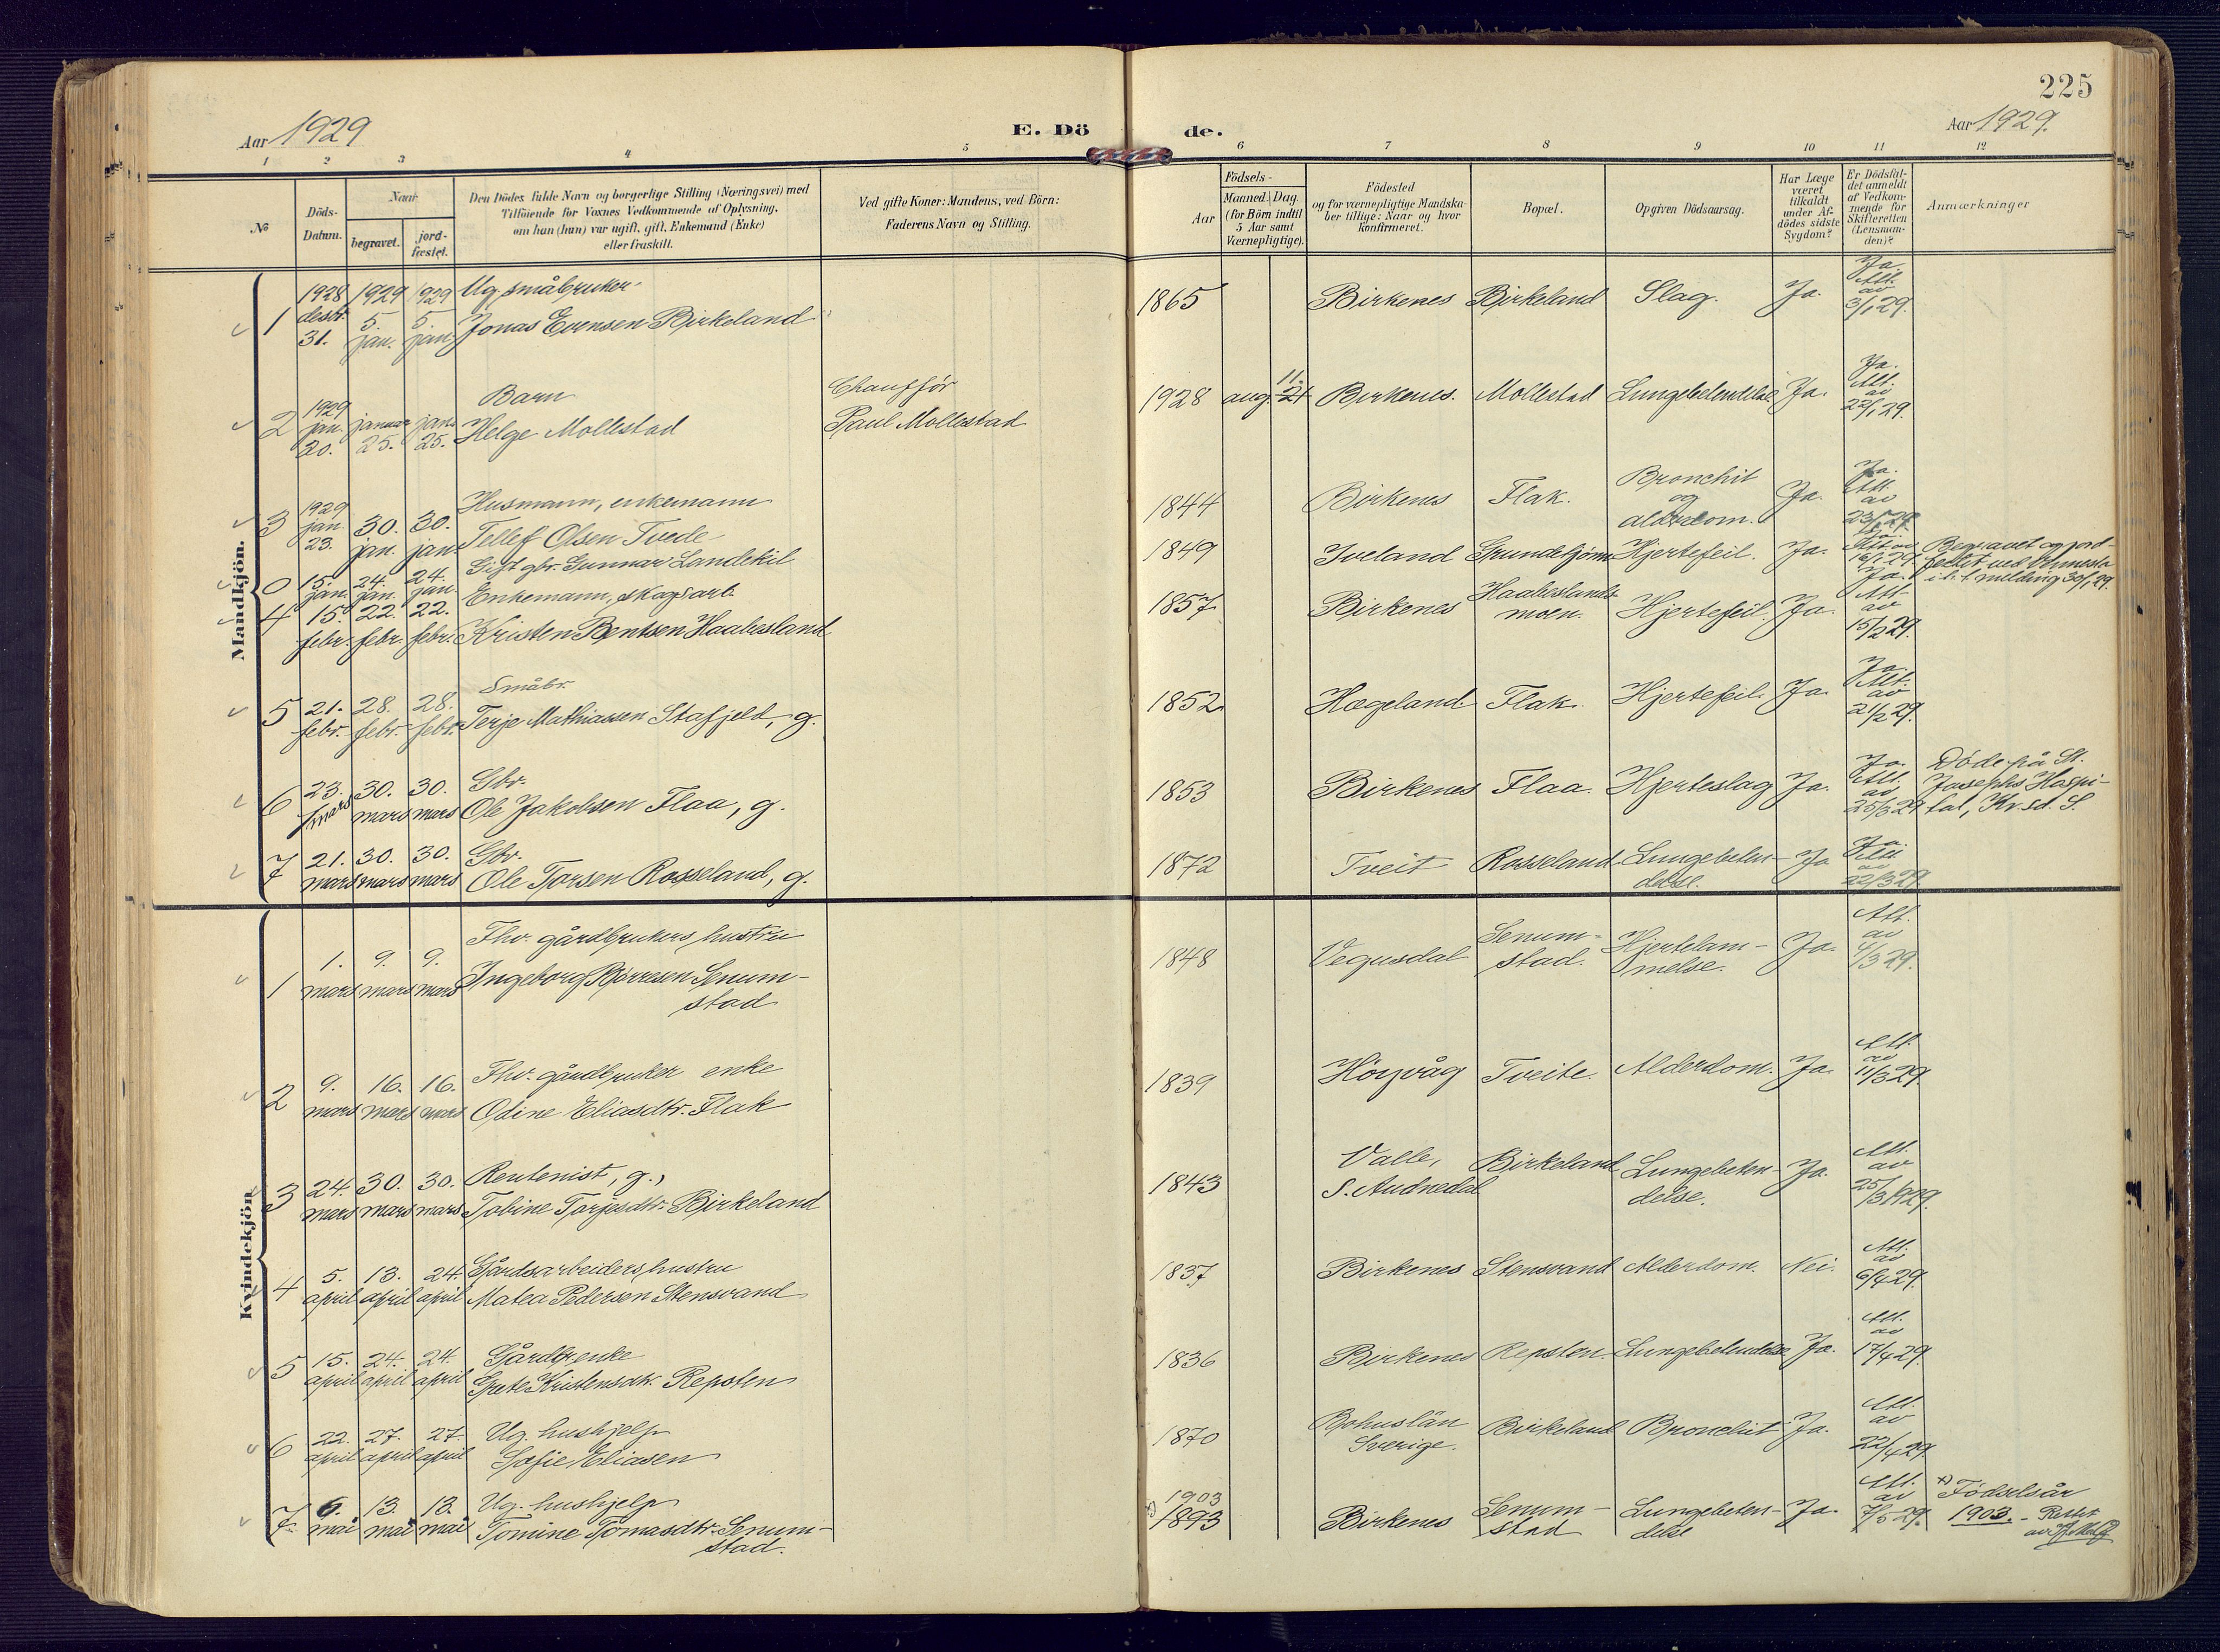 225
Aar 1929
E. Döde.
Aar 1929.
1 2 3 4 5 6 7 8 9 10 11 12
№
Döds-
Datum.
Naar
begravet.
jord-
fæstet.
Den Dödes fulde Navn og borgerlige Stilling (Næringsvei) med
Tilföiende for Voxnes Vedkommende af Oplysning,
om han (hun) var ugift, gift, Enkemand (Enke)
eller fraskilt.
Ved gifte Koner: Mandens, ved Börn:
Faderens Navn og Stilling.
Födsels-
Aar
Maaned. Dag.
(for Börn indtil
5 Aar samt
Værnepligtige).
Födested
og for værnepligtige Mandska-
ber tillige: Naar og hvor
konfirmeret.
Bopæl.
Opgiven Dödsaarsag.
Har Læge
været
tilkaldt
under Af-
dödes sidste
Sygdom?
Er Dödsfal-
det anmeldt
af Vedkom-
mende for
Skifteretten
(Lensman-
den)?
Anmærkninger
Mandkjön.
1 1928 desbr. 31. 1929 5. jan. 1929 5 jan Ug. småbruker
Jonas Evensen Birkeland
1865 Birkenes Birkeland Slag. Ja. Ja. Att. av 3/1 29.
2 1929 jan. 20. januar 25. jan. 25. Barn
Helge Mollestad
Chaufför
Paul Mollestad
1928 aug. 11. 21 Birkenes. Mollestad Lungebetendelse Ja. Ja. Att. av 22/1 29.
3 1929 jan. 23. 30. jan. 30. jan. Husmann, enkemann
Tellef Olsen Tvede
1844 Birkenes Flak. Bronchit og alderdom. Ja. Ja. Att. av 23/1 29.
0 15. jan. 24. jan. 24. jan. Gift gbr. Gunnar Landekil
1849 Iveland Grundetjønn Hjertefeil. Ja. 16/1 29. Begravet og jord-
festet ved Vennesla
i. f. melding 30/1 29.
4 15. febr. 22. febr. 22. febr. Enkemann, skogsarb.
Kristen Bentsen Haabesland
1857 Birkenes Haabeslands-
moen. Hjertefeil. Ja. Ja. Att. av 15/2 29.
5 21. febr. 28. febr. 28. febr. Småbr.
Terje Mathiassen Stafjeld, g.
1852 Hægeland. Flak. Hjertefeil. Ja. Ja. Att. av 21/2 29.
6 23. mars 30. mars 30. mars Gbr.
Ole Jakobsen Flaa, g.
1853 Birkenes Flaa. Hjerteslag Ja. Ja. Att. av 25/3 29 Døde på St.
Josephs Hospi-
tal, Kr.sd. S.
7 21. mars 30. mars 30. mars Gbr.
Ole Torsen Rosseland, g.
1872 Tveit Rosseland Lungebeten-
delse. Ja Ja. Att. av 22/3 29
Kvindekjön
1 1. mars 9. mars 9. mars Fhv. gårdbrukers hustru
Ingeborg Børresen Senum-
stad
1848 Vegusdal Senum-
stad. Hjertelam-
melse. Ja. Att. av 4/3 29.
2 9. mars 16. mars 16. mars Fhv. gårdbruker enke
Odine Eliasdtr. Flak
1839 Høyvåg Tveite. Alderdom. Ja. Att. av 11/3 29
3 24. mars 30. mars 30. mars Rentenist, g.,
Tobine Torjesdtr. Birkeland
1843 Valle,
S. Audnedal Birkeland Lungebeten-
delse. Ja. Att. av 25/3 1929.
4 5. april 13. april 24. april Gårdsarbeiders hustru
Matea Pedersen Stensvand
1837 Birkenes Stensvand Alderdom. Nei. Att. av 6/4 29.
5 15. april 24. april 24. april Gårdbr. enke
Grete Kristensdtr. Repsten
1836 Birkenes Repsten. Lungebetendelse Ja. Att. av 17/4 29.
6 22. april 27. april 27. april Ug. hushjelp
Sofie Eliasen
1870 Bohuslän
Sverige. Birkeland Bronchit Ja. Att. av 22/4 29.
7. 6. mai 13. mai 13. mai Ug. hushjelp
Tomine Tomasdtr. Senum-
stad.
x) 1903 1893 Birkenes Senum-
stad Lungebeten-
delse Ja. Att. av 7/5 29. x) Fødselsår
1903. - Rettet
av